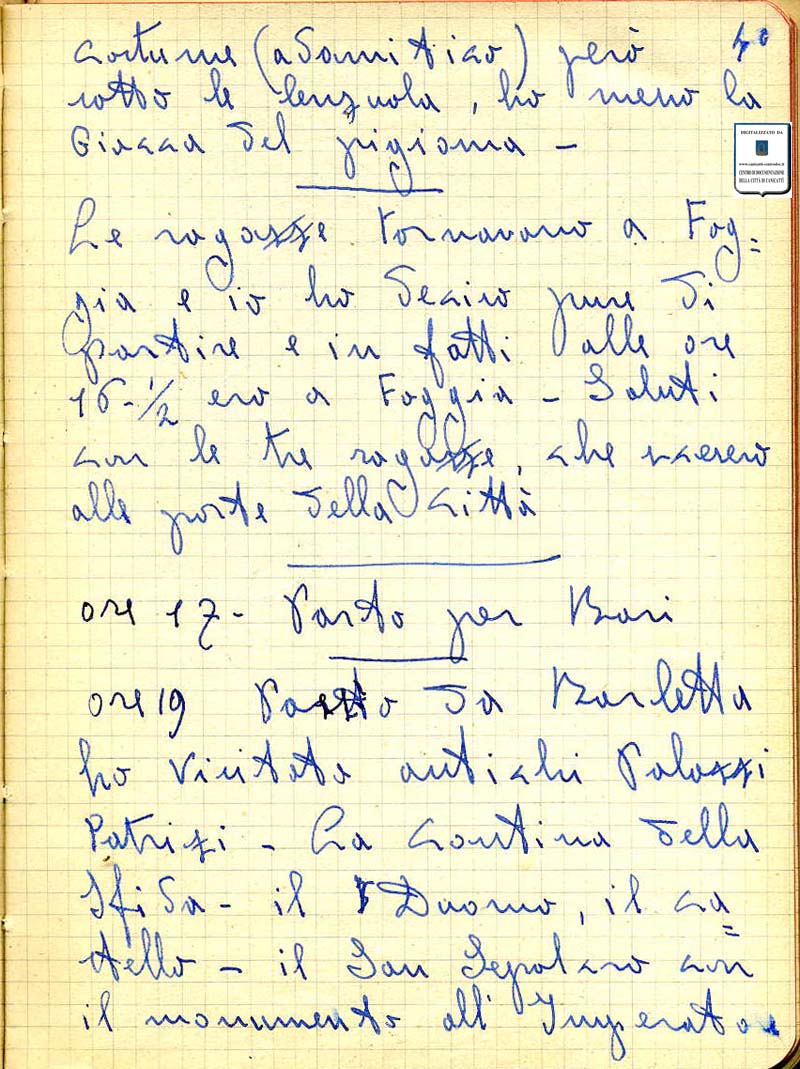 costume (adamitico) però 40
sotto le lenzuola, ho meno la
Giacca del pigiama -
DIGITALIZZATO DA
www.canicatti-centrodoc.it
CENTRO DI DOCUMENTAZIONE
DELLA CITTÀ DI CANICATTÌ
Le ragazze tornavano a Fog=
gia e io ho deciso pure di
partire e in fatti alle ore
16-1/2 ero a Foggia - Saluti
con le tre ragazze, che scesero
alle porte della città
ore 17- Parto per Bari
ore 19 Parto da Barletta
ho visitato antichi Palazzi
Patrizi - La Cantina della
Sfida - il Duomo, il ca=
stello - il San Sepolcro con
il monumento all' Imperatore